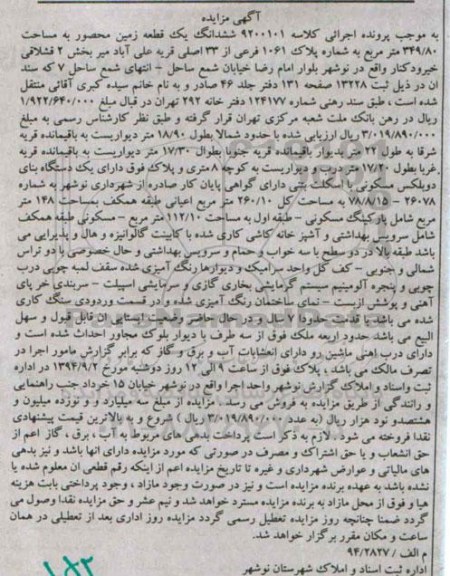 آگهی مزایده
به موجب پرونده اجرائی کلاسه ۹۲۰۰۱۰۱ ششدانگ یک قطعه زمین محصور به مساحت
۳۴۹/۸۰ متر مربع به شماره پلاک ۱۰۶۱ فرعی از ۳۳ اصلی قریه علی آباد میر بخش ۲ قشلاقی
خیرودکنار واقع در نوشهر بلوار امام رضا خیابان شمع ساحل - انتهای شمع ساحل ۷ که سند
آن در ذیل ثبت ۱۳۲۲۸ صفحه ۱۳۱ دفتر جلد ۴۶ صادر و به نام خانم سیده کبری آقائی منتقل
شده است ، طبق سند رهنی شماره ۱۲۴۱۷۷ دفتر خانه ۲۹۲ تهران در قبال مبلغ ۱/۹۲۲/۶۴۰/۰۰۰
ریال در رهن بانک ملت شعبه مرکزی تهران قرار گرفته و طبق نظر کارشناس رسمی به مبلغ
۳/۰۱۹/۸۹۰/۰۰۰ ریال ارزیابی شده با حدود شمالا بطول ۱۸/۹۰ متر دیواریست به باقیمانده قریه
شرقا به طول ۲۲ متر بدیوار باقیمانده قریه جنوبا بطول ۱۷/۳۰ متر دیواریست به باقیمانده قریه
غربا بطول ۱۷/۲۰ متر درب و دیواریست به کوچه ۸ متری و پلاک فوق دارای یک دستگاه بنای
دوبلکس مسکونی با اسکلت بتنی دارای گواهی پایان کار صادره از شهرداری نوشهر به شماره
۲۶۰۷۸ - ۷۸/۸/۱۵ به مساحت کل ۲۶۰/۱۰ متر مربع اعیانی طبقه همکف بمساحت ۱۴۸ متر
مربع شامل پارکینگ مسکونی - طبقه اول به مساحت ۱۱۲/۱۰ متر مربع - مسکونی طبقه همکف
شامل سرویس بهداشتی و آشپز خانه کاشی شده با کابینت گالوانیزه و هال و پذیرایی می
باشد طبقه بالا در دو سطح با سه خواب و حمام و سرویس بهداشتی و حال خصوصی با دو تراس
شمالی و جنوبی - کف کل واحد سرامیک و دیوارها رنگ آمیزی شده سقف لمبه چوبی درب
چوبی و پنجره آلومینیم سیستم گرمایشی بخاری گازی و سرمایشی اسپیلت - سربندی خر پای
آهنی و پوشش ازبست - نمای ساختمان رنگ آمیزی شده و در قسمت وردودی سنگ کاری
شده می باشد با قدمت حدودا ۷ سال و در حال حاضر وضعیت ایستایی آن قابل قبول و سهل
البیع می باشد حدود اربعه ملک فوق از سه طرف با دیوار بلوک مجاور احداث شده است و
دارای درب آهنی ماشین رو دارای انعشابات آب و برق و گاز که برابر گزارش مامور اجرا در
تصرف مالک می باشد ، پلاک فوق از ساعت ۹ الی ۱۲ روز دوشنبه مورخ ۱۳۹۴/۹/۲ در اداره
ثبت واسناد و املاک گزارش نوشهر واحد اجرا واقع در نوشهر خیابان ۱۵ خرداد جنب راهنمایی
و رانندگی از طریق مزایده به فروش می رسد . مزایده از مبلغ سه میلیارد و و نوزده میلیون و
هشتصدو نود هزار ریال (به عدد ۳/۰۱۹/۸۹۰/۰۰۰ ریال ) شروع و به بالاترین قیمت پیشنهادی
نقدا فروخته می شود . لازم به ذکر است پرداخت بدهی های مربوط به آب ، برق ، گاز اعم از
حق انشعاب و یا حق اشتراک و مصرف در صورتی که مورد مزایده دارای آنها باشد و نیز بدهی
های مالیاتی و عوارض شهرداری و غیره تا تاریخ مزایده اعم از اینکه رقم قطعی آن معلوم شده یا
نشده باشد به عهده برنده مزایده است و نیز در صورت وجود مازاد ، وجود پرداختی بابت هزینه
هپا و فوق از محل مازاد به برنده مزایده مسترد خواهد شد و نیم عشر و حق مزایده نقدا وصول می
گردد ضمنا چنانچه روز مزایده تعطیل رسمی گردد مزایده روز اداری بعد از تعطیلی در همان
ساعت و مکان مقرر برگزار خواهد شد.
م الف / ۹۴/۲۸۲۷
اداره ثبت اسناد و املاک شهرستان نوشهر